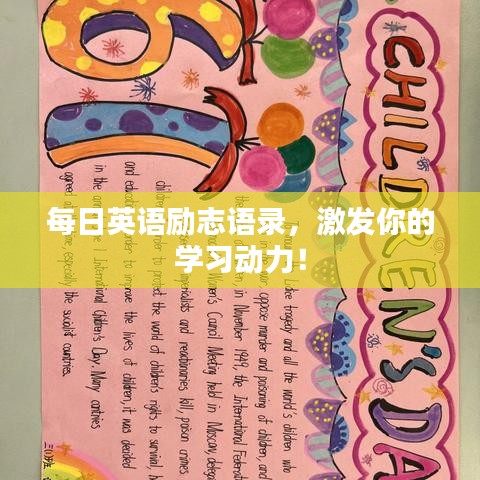 CHILDREN'S DA
61
tragedy and all the world's children who
oppose murder and poisoning of children, and
in November 1949, the International Federation
Women's Council Meeting held in Moscow,
and reactionaries kill, poison crimes
order to protect the world of children's rights to survival,
and order to improve the lives of children, it was decided
in the 1 International Children's Day. Many countries
agreed especially the socialist countries.
每日英语励志语录，激发你的
学习动力！